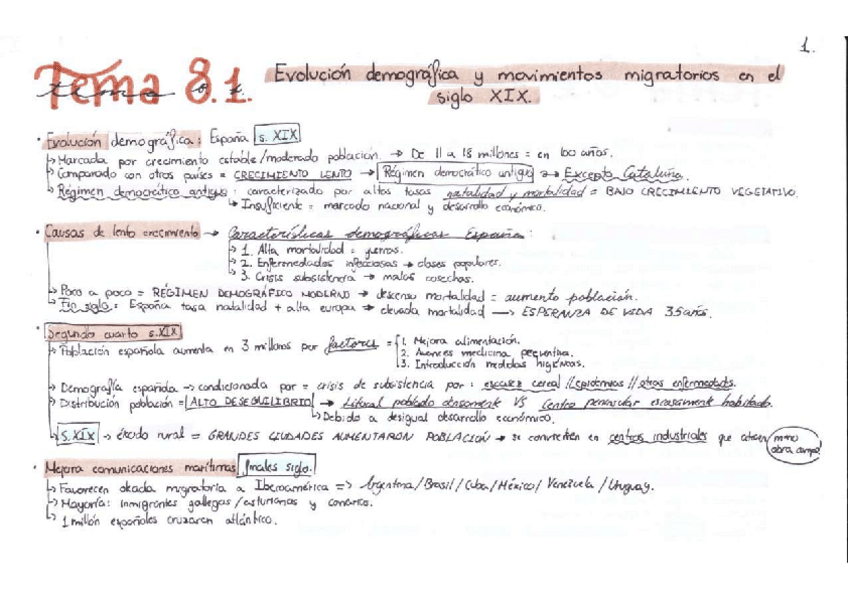 1.
Tema 8.1. Evolución demográfica y movimientos migratorios en el
siglo XIX.
· Evolución demográfica: España s. XIX
↳ Marcada por crecimiento estable/moderado población. → De 11 a 18 millones = en 100 años.
↳ Comparado con otros países = CRECIMIENTO LENTO → Régimen democrático antiguo → Excepto Cataluña.
↳ Régimen democrático antiguo: caracterizado por altas tasas natalidad y mortalidad = BAJO CRECIMIENTO VEGETATIVO.
↳ Insuficiente = mercado nacional y desarrollo económico.
· Causas de lento crecimiento → Características demográficas España:
↳ 1. Alta mortalidad = guerras.
↳ 2. Enfermedades infecciosas → clases populares.
↳ 3. Crisis subsistencia → malas cosechas.
↳ Poco a poco = RÉGIMEN DEMOGRÁFICO MODERNO → descenso mortalidad = aumento población.
↳ Fin siglo = España tasa natalidad + alta europa → elevada mortalidad → ESPERANZA DE VIDA 35 años.
· Segundo cuarto s.XIX
↳ Población española aumenta en 3 millones por factores = 1. Mejora alimentación.
2. Avances medicina
3. Introducción medidas higiénicas.
↳ Demografía española → condicionada por = crisis de subsistencia por: escasez cereal // epidemias // otras enfermedades.
↳ Distribución población = ALTO DESEQUILIBRIO → Litoral poblado densament VS centro peninsular escasament habitado.
↳ Debido a desigual desarrollo económico.
↳ S.XIX → éxodo rural = GRANDES CIUDADES AUMENTARON POBLACIÓN → se convierten en centros industriales que atraen mano
obra campo
· Mejora comunicaciones marítimas finales siglo.
↳ Favorecen oleada migratoria a Iberoamérica => Argentina/Brasil/Cuba/México/Venezuela/Uruguay.
↳ Mayoría: inmigrantes gallegos/asturianos y canarios.
↳ 1 millón españoles cruzaron atlántico.